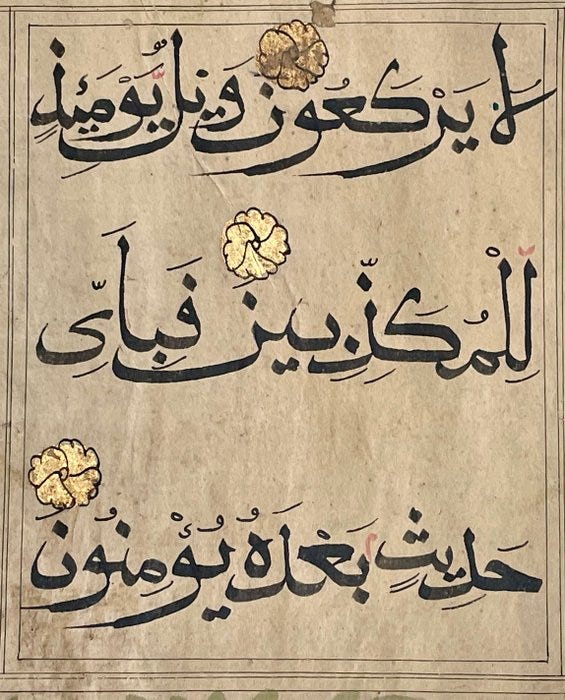 لَا يَرْكَعُونَ وَيْلٌ يَوْمَئِذٍ
لِلْمُكَذِّبِينَ فَبِأَىِّ
حَدِيثٍ بَعْدَهُ يُؤْمِنُونَ